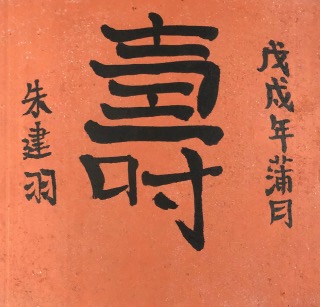 戊戌年蒲月
壽
朱建羽